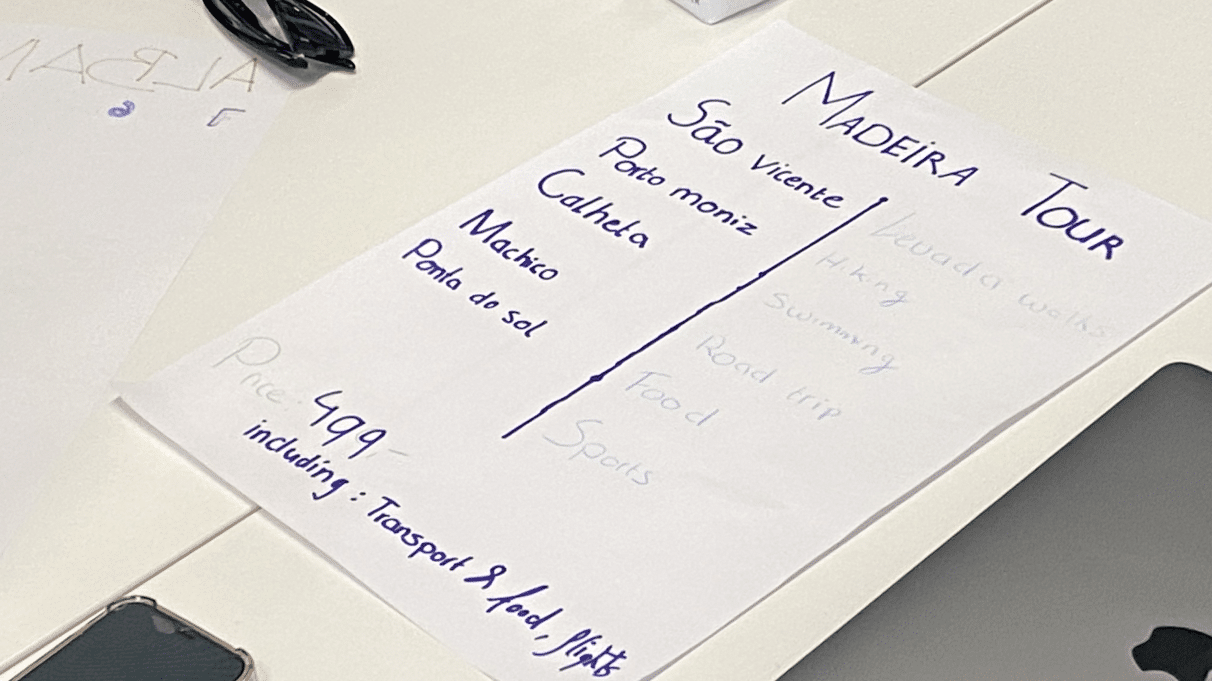 MADEIRA TOUR
São Vicente
Porto moniz
Calheta
Machico
Ponta do sol
Levada walks
Hiking
Swimming
Road trip
Food
Sports
Price: 499,-
including: Transport & food, flights